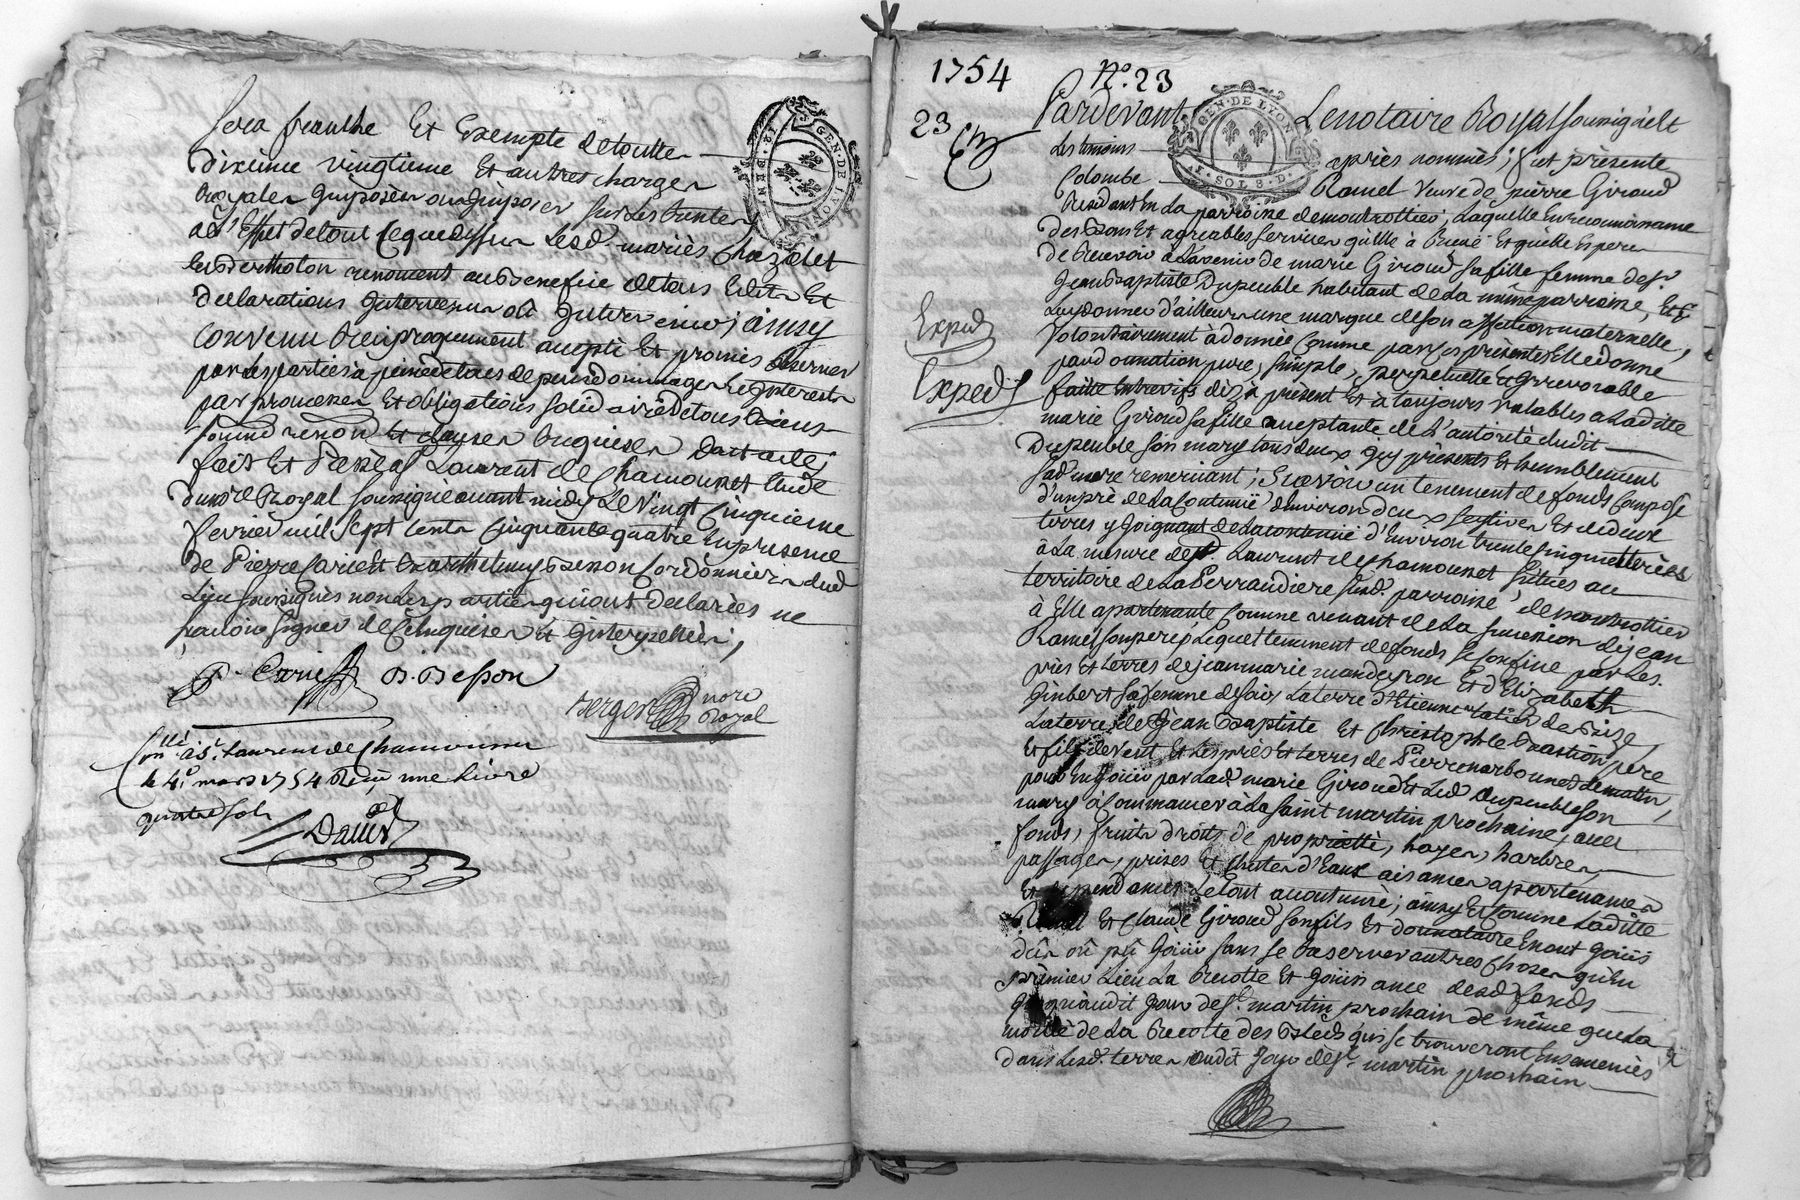 sera franche Et Exempte detoutte
dixieme vingtieme Et autres charges
Royales jmposées ou ajmposer sur Les Rentes
al'Effet detout cequedessus Lesd. mariés Chazelet
Et Bertholon renoncent au Benefice detous Edits Et
declarations jntervenus où jntervenir; ainsy
Convenu Reciproquement accepté Et promis observer
par Lesparties à peine detous depens dommages Et jnterests
par promesses Et obligations solidaires detous Biens
soumis renon. Et clauses Requises Dont acte;
fait Et Passé à St Laurent de Chamousset Etude
du nore Royal soussigné avant midy Le Vingt Cinquieme
fevrier mil sept Cents Cinquante quatre En presence
de Pierre Carie Et Barthelemy Besson Cordonniers dud.
Lieu soussignés non Les parties quiont declarées ne
savoir signer de Ce Enquises Et jnterpellées;
P. Carie B. Besson
Berger nore
Royal
Con.llé à St. Laurent de Chamousset
le 4e. mars 1754 Reçu une Livre
quatre sols
GEN·DE LYON
1754 No. 23
23
GEN·DE LYON
1·SOL 8·D·
Pardevant Lenotaire Royal soussigné Et
Les temoins après nommés; fut présente
Colombe Ramel veuve de pierre Giroud
Residant En La parroisse demontrottier, Laquelle En reconnoissance
Des Bons Et agreables services qu'elle à Reçu Et qu'elle Espere
de Recevoir à L'avenir de marie Giroud sa fille femme de sr.
Jean Baptiste Dupeuble habitant de La même parroisse, Et p.
Luy donner d'ailleurs une marque de son affection maternelle,
Exped
Volontairement à donnée Comme par Ces présentes Elle donne
par donnation pure, simple, perpetuelle Et jrrevocable
Exped
faitte Entrevifs déz à présent Et à toujours valables a Laditte
marie Giroud sa fille acceptante de L'autorité dudit
Dupeuble son mary tous deux jcy présents Et humblement
sad. mere remerciant; sçavoir un tenement de fonds Composé
d'un pré de La Contenüe d'Environ deux seytives Et de deux
terres y joignant de La contenüe d'Environ trente Cinq metterées
à La mesure de St. Laurent de Chamousset sitües au
territoire de La Perraudiere susd. parroisse de montrottier
à Elle apartenante Comme venant de La succession de jean
Ramel son pere; Lequel tenement de fonds se Confine par Les
prés Et terres de jean marie mandeyron Et d'Elizabeth
Gimbert sa femme de soir La terre d'Etienne de Bize,
La terre de Jean Baptiste Et Christophle Brastion pere
Et fils de vent Et Les prés Et terres de Pierre narbonnet de matin,
pour En Jouir par Lad. marie Giroud Et Led. Dupeuble son
mary à Commancer à La saint martin prochaine, avec
fonds, fruits droits de proprietté, hayes, harbres,
passages, prises Et Chutes d'Eaux aisances apartenances
Et dependances Le tout accoutumé; ainsy Et Comme Laditte
Ramel Et Claude Giroud son fils Et donnataire En ont jouis
dûs où pû joüir sans se Reserver autres Choses qu'en
prémier Lieu La Recolte Et joüissance desd. fonds
jusqu'audit jour de St. martin prochain de même que La
moitié de La Recolte des Bleds qui se trouveront Ensemencés
dans Lesd. terres audit jour de St. martin prochain